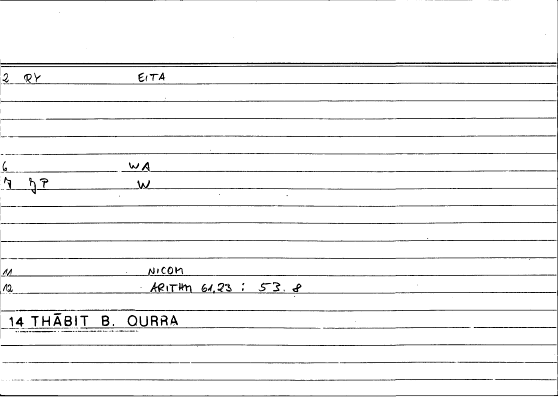 2 RY EITA
6 WA
7 7P W
11 NICOM
12 ARITHM 61,23 : 53.8
14 THĀBIT B. QURRA